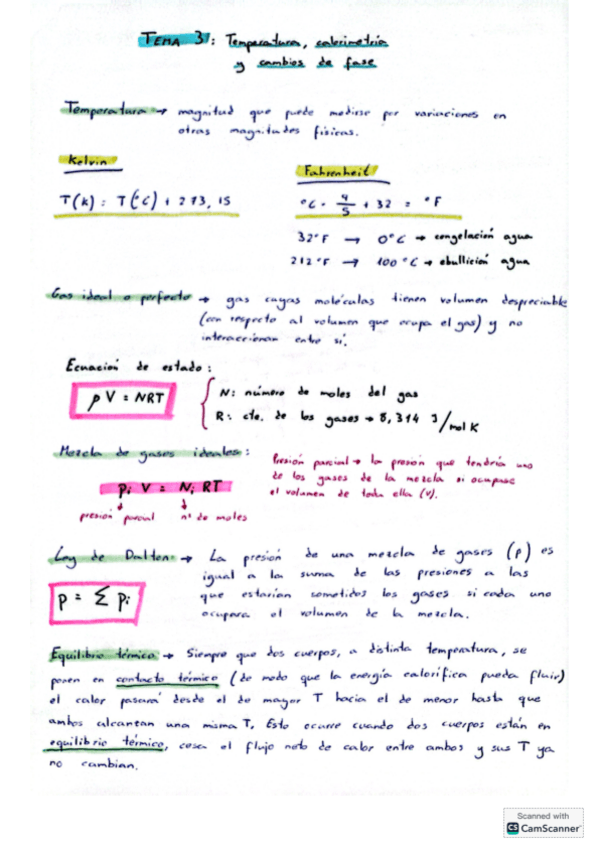 TEMA 3: Temperatura, calorimetría
y cambios de fase
Temperatura → magnitud que puede medirse por variaciones en
otras magnitudes físicas.
Kelvin
T(K) = T(ºC) + 273,15
Fahrenheit
ºC · 9/5 + 32 = ºF
32ºF → 0ºC → congelación agua
212ºF → 100ºC → ebullición agua
Gas ideal o perfecto → gas cuyas moléculas tienen volumen despreciable
(con respecto al volumen que ocupa el gas) y no
interaccionan entre sí.
Ecuación de estado:
pV = NRT
N: número de moles del gas
R: cte. de los gases → 8,314 J/mol K
Mezcla de gases ideales:
pi V = Ni RT
presión parcial nº de moles
Presión parcial → la presión que tendría uno
de los gases de la mezcla si ocupase
el volumen de toda ella (V).
Ley de Dalton → La presión de una mezcla de gases (p) es
igual a la suma de las presiones a las
que estarían sometidos los gases si cada uno
ocupara el volumen de la mezcla.
p = Σ pi
Equilibrio térmico → Siempre que dos cuerpos, a distinta temperatura, se
ponen en contacto térmico (de modo que la energía calorífica pueda fluir)
el calor pasará desde el de mayor T hacia el de menor hasta que
ambos alcanzan una misma T. Esto ocurre cuando dos cuerpos están en
equilibrio térmico, cesa el flujo neto de calor entre ambos y sus T ya
no cambian.
Scanned with
CS CamScanner